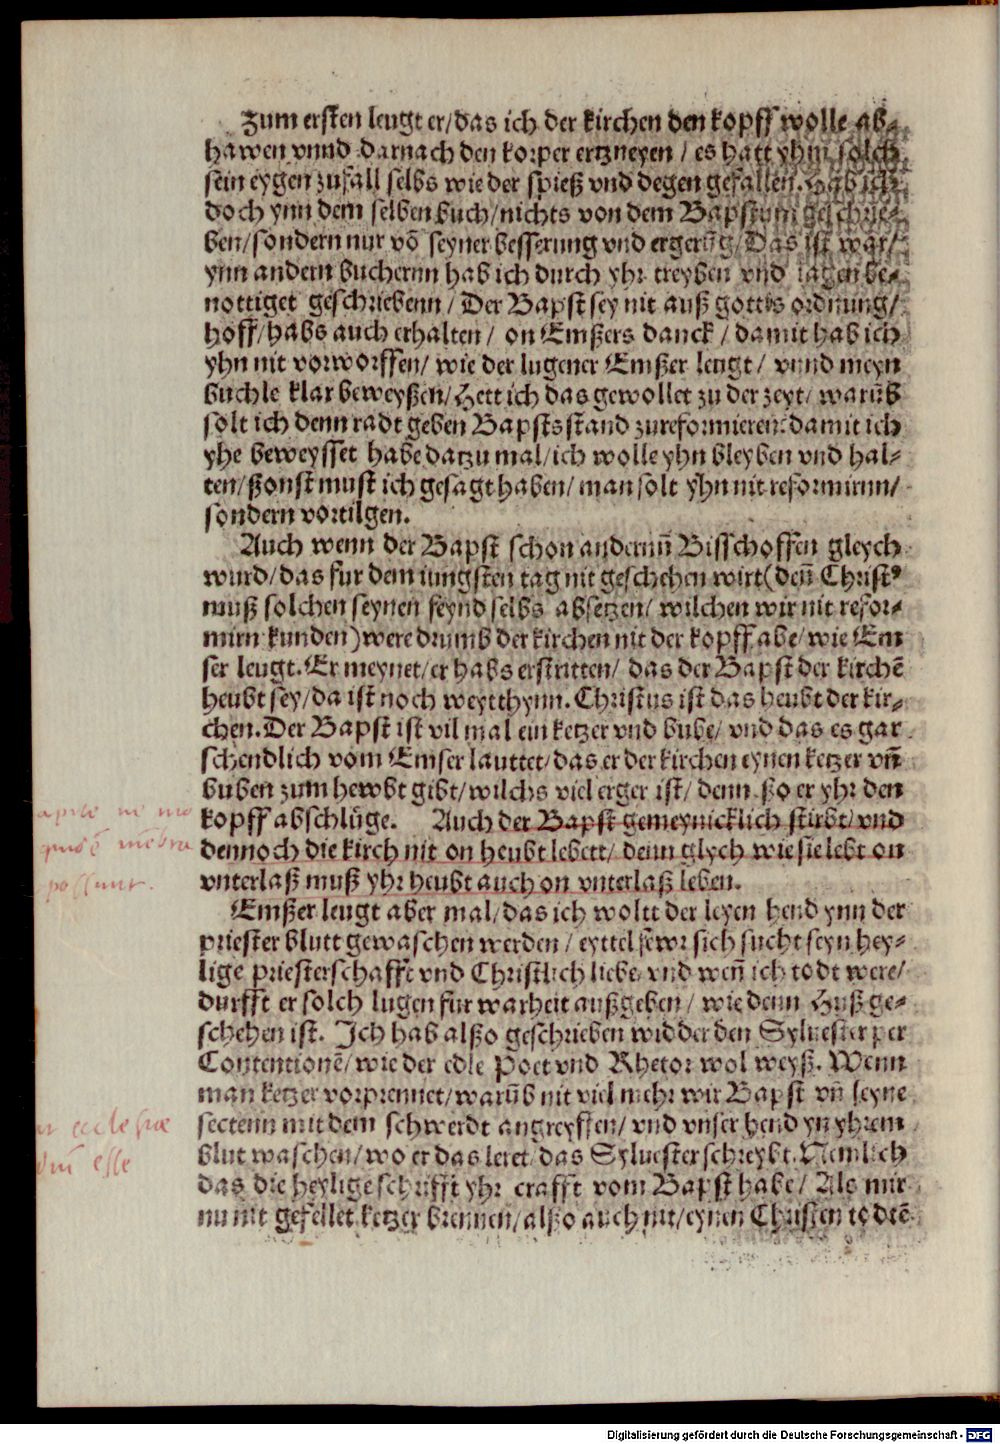 Zum ersten leugt er/das ich der kirchen den kopff wolle ab-
hawen vnnd darnach den korper ertzneyen / es hatt yhm solch
sein eygen zufall selbs wie der spieß vnd degen gefallen. Hab ich
doch ynn dem selben buch/nichts von dem Bapstum geschrie-
ben/sondern nur võ seyner besserung vnd ergerũg/Das ist war/
ynn andern buchernn hab ich durch yhr treyben vnd iagen be-
nottiget geschriebenn / Der Bapst sey nit auß gottis ordnung/
hoff/habs auch erhalten / on Emßers danck / damit hab ich
yhn nit vorworffen/ wie der lugener Emßer leugt / vnnd meyn
buchle klar beweyßen/Hett ich das gewollet zu der zeyt/ warũb
solt ich denn radt geben Bapsts stand zureformieren: damit ich
yhe beweysset habe datzu mal/ich wolle yhn bleyben vnd hal-
ten/ßonst must ich gesagt haben/man solt yhn nit reformirnn/
sondern vortilgen.
Auch wenn der Bapst schon andernñ Bisschoffen gleych
wurd/das fur dem iungsten tag nit geschehen wirt(deñ Christꝰ
muß solchen seynen feynd selbs absetzen/ wilchen wir nit refor-
mirn kunden)were drumb der kirchen nit der kopff abe/wie Em
ser leugt. Er meynet/er habs erstritten/ das der Bapst der kirchẽ
heubt sey/da ist noch weytthynn. Christus ist das heubt der kir-
chen. Der Bapst ist vil mal ein ketzer vnd bube/ vnd das es gar
schendlich vom Emser lauttet/das er der kirchen eynen ketzer vñ
buben zum hewbt gibt/wilchs viel erger ist/ denn ßo er yhr den
kopff abschlũge. Auch der Bapst gemeynicklich stirbt/vnd
dennoch die kirch nit on heubt lebett/ denn glych wie sie lebt on
vnterlaß muß yhr heubt auch on vnterlaß leben.
Emßer leugt aber mal/das ich woltt der leyen hend ynn der
priester blutt gewaschen werden / eyttel fewr sich sucht seyn hey-
lige priesterschafft vnd Christlich liebe vnd weñ ich todt were/
durfft er solch lugen fur warheit außgeben / wie denn Hußge-
schehen ist. Ich hab alßo geschrieben widder den Syluester per
Contentionẽ/wie der edle Poet vnd Rhetor wol weyß. Wenn
man ketzer vorprennet/warũb nit viel mehr wir Bapst vñ seyne
sectenn mit dem schwerdt angreyffen/ vnd vnser hend yn yhrem
blut waschen/wo er das leret/das Syluester schreybt. Nemlich
das die heylige schrifft yhr crafft vom Bapst habe/ Als mir
nu nit gefellet ketzer brennen/alßo auch nit/eynen Christen tödtẽ
membra
possunt.
ecclesiae
esse
Digitalisierung gefördert durch die Deutsche Forschungsgemeinschaft - DFG